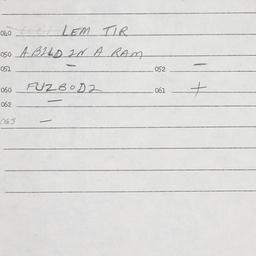 040 LEM TIR
050 ABILD IN A RAM
051 — 052 —
060 FUZBODZ 061 +
062 —
063 —